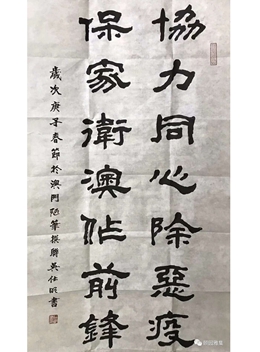 協力同心除惡疫
保家衛澳作前鋒
歲次庚子春節於澳門 華撰聯吳仕明書